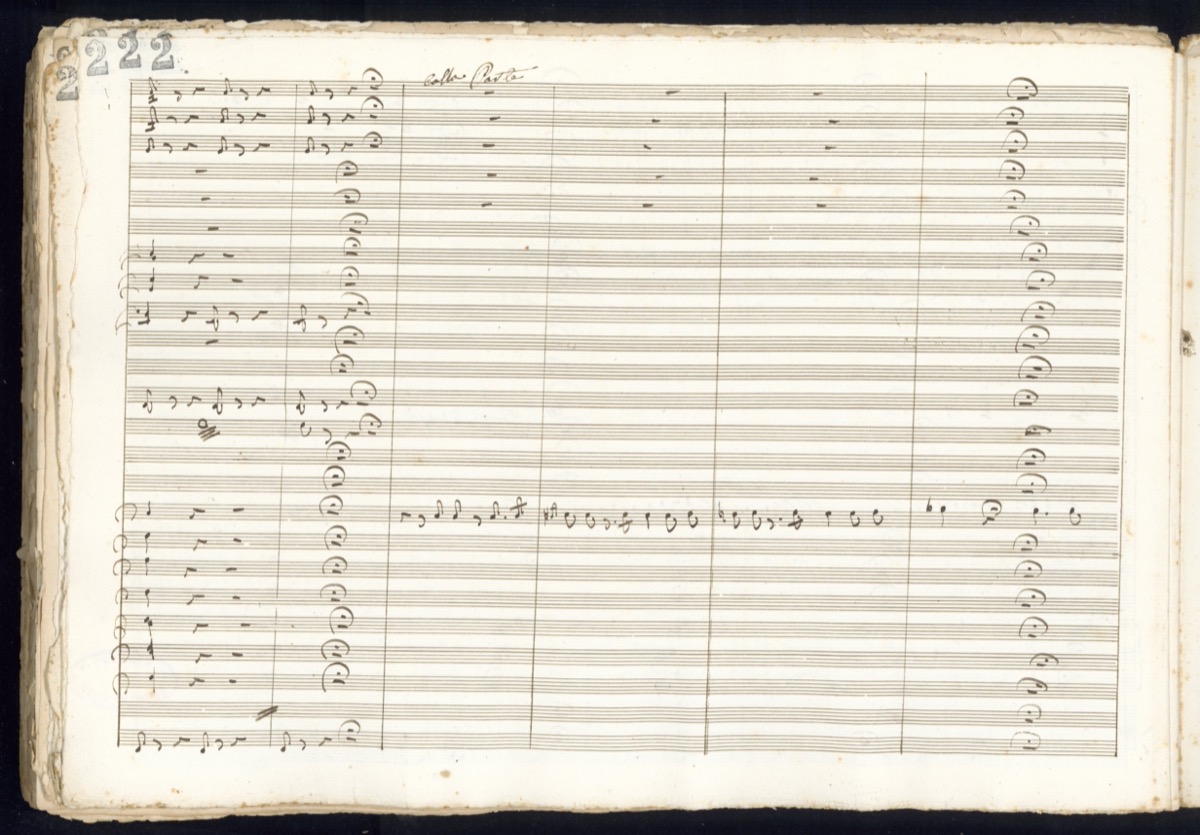 2222
2
colla Parte